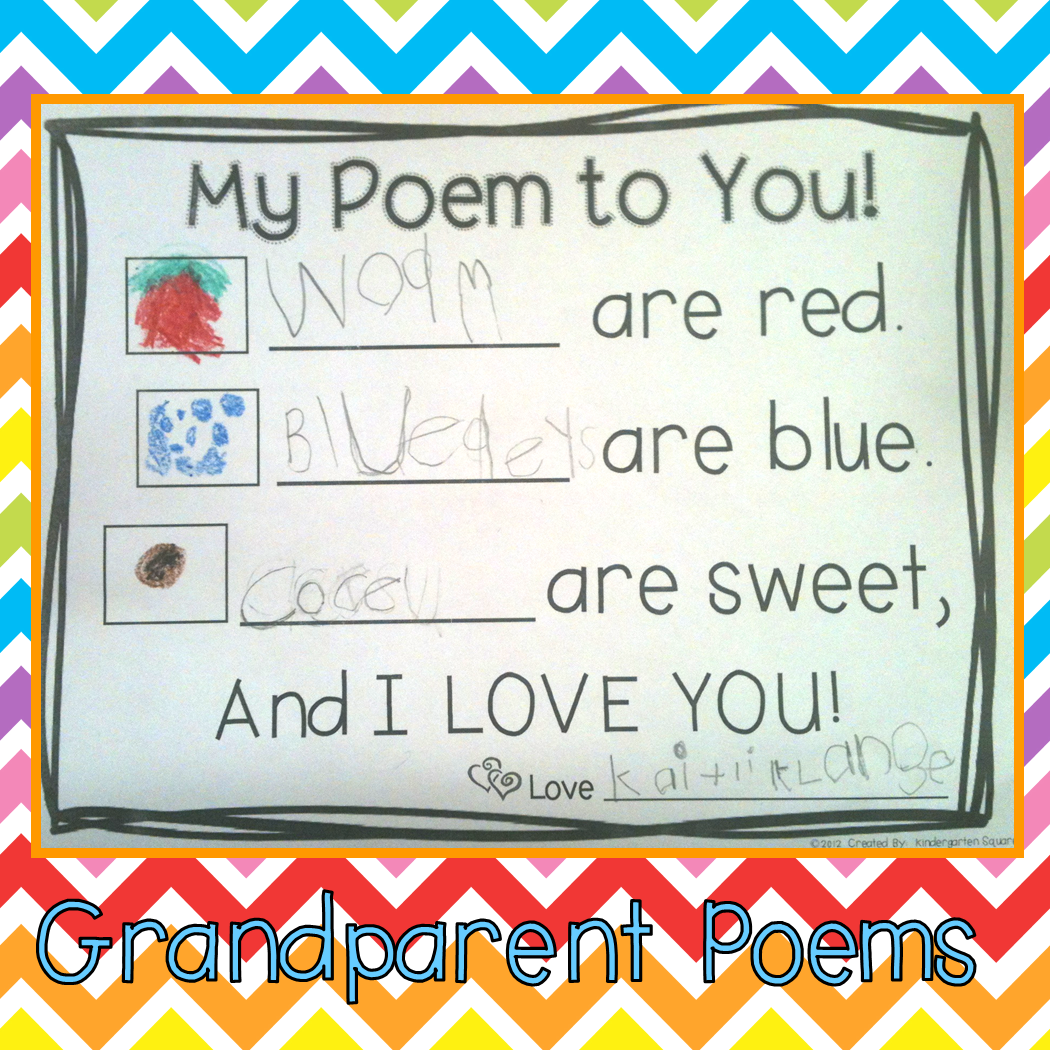 My Poem to You!
Woqm are red.
Blueqeys are blue.
Cocey are sweet,
And I LOVE YOU!
Love
©2012 Created By: Kindergarten Squar
Grandparent Poems